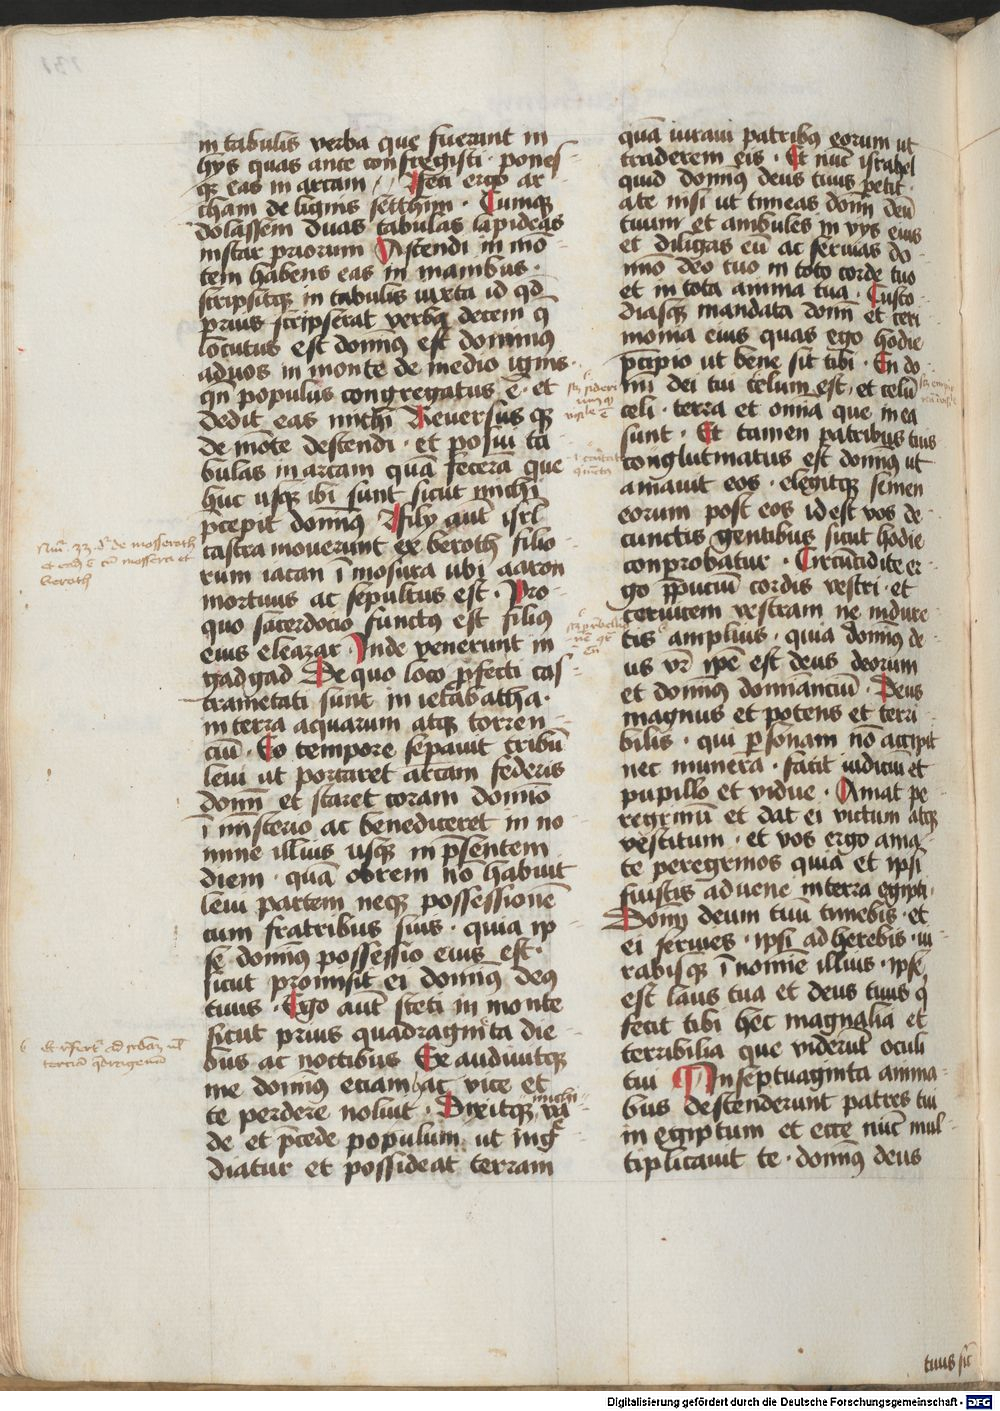 in tabulis verba que fuerunt in
hijs quas ante confregisti · pones
qꝫ eas in arcam Feci ergo ar
cham de lignis setthim · Cumqꝫ
dolassem duas tabulas lapideas
instar priorum Ascendi in mō
tem habens eas in manibus ·
scripsitqꝫ in tabulis iuxta id qd̄
prius scripserat verba decem q̄
locutus est domin9 est dominus
ad uos in monte de medio ignis ·
qn̄ populus congregatus ē · et
dedit eas michi Reuersus qꝫ
de mōte descendi · et posui ta
bulas in arcam quā fecerā que
huc usqꝫ ibi sunt sicut michi
p̄cepit domin9 Filij aut̄ isrl̄
castra mouerunt ex beroth filio
rum iacan ī mosura ubi aaron
mortuus ac sepultus est · Pro
quo sacerdocio funct9 est fili9
eius eleazar · Inde venerunt in
gadgad De quo loco p̄fecti cas
trametati sunt in ietabatha ·
in terra aquarum atqꝫ torren
ciū · Eo tempore sepauit tribū
leui ut portaret arcam federis
domī et staret coram domīo
ī mīsterio ac benediceret in no
mine illius usqꝫ in p̄sentem
diem · quā obrem nō habuit
leui partem neqꝫ possessionē
cum fratribus suis · quia ip
se domin9 possessio eius est ·
sicut promisit ei domin9 de9
tuus · Ego aut̄ steti in monte
sicut prius quadraginta die
bus ac noctibus Exaudiuitqꝫ
me domin9 eciam hac vice et
te perdere noluit · Dixitqꝫ michi va
de et p̄cede populum ut ingre
diatur et possideat terram
quā iuraui patrib9 eorum ut
traderem eis · Et nūc israhel
quid domin9 deus tuus petit
a te nisi ut timeas domī deū
tuum et ambules in vijs eius
et diligas eū ac seruias do
mīo deo tuo in toto corde tuo
et in tota anima tua · Custo
diasqꝫ mandata domī et ceri
monia eius quas ego hodie
p̄cipio ut bene sit tibi · En do
mī dei tui celum est · et celū
celi · terra et omīa que in ea
sunt · Et tamen patribus tuis
conglutinatus est domin9 ut
amauit eos · elegitqꝫ semen
eorum post eos id est vos de
cunctis gentibus sicut hodie
conprobatur · Circūcidite er
go p̄puciū cordis vestri · et
ceruicem vestram ne indure
tis amplius · quia domin9 de
us vr̄ ip̄e est deus deorum
et domin9 dominanciū · Deus
magnus et potens et terri
bilis · qui personam nō accipit
nec munera · facit iudiciū et
pupillo et vidue · Amat pe
regrinū et dat ei victum atqꝫ
vestitum · et vos ergo ama
te peregrinos quia et ipsi
fuistis aduene in terra egipti ·
Domī deum tuū timebis · et
ei seruies · ipsi adherebis · iu
rabisqꝫ ī nomīe illius · ipse
est laus tua et deus tuus q̄
fecit tibi hec magnalia et
terribilia que viderūt oculi
tui In septuaginta anima
bus descenderunt patres tui
in egiptum et ecce nūc mul
tiplicauit te · domin9 deus
tuus sic
Digitalisierung gefördert durch die Deutsche Forschungsgemeinschaft - DFG